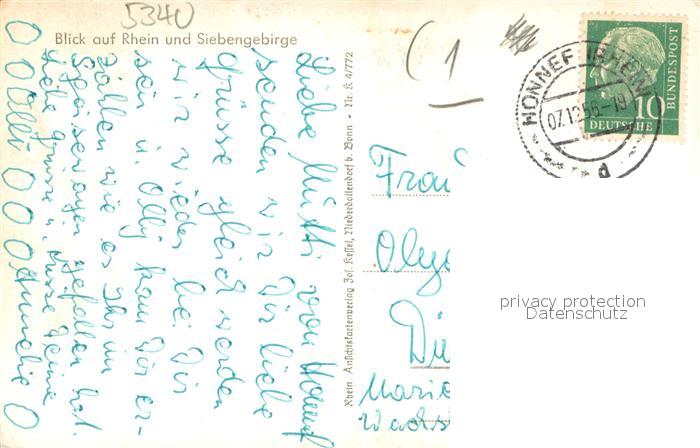 5340
Blick auf Rhein und Siebengebirge
(1
HONNEF (RHEIN)
07.12.56-19
d
10
DEUTSCHE
BUNDESPOST
Liebe Mutti, von Honnef
senden wir Dir liebe
Grüsse, gleich werden
wir wieder bei Dir
sein u. Olly kann Dir er-
zählen wie es ihr im
Speisewagen gefallen hat.
Liebe Grüsse u. Küsse Deine
Olly
Annelie
Rhein. Ansichtskartenverlag Jos. Kessel, Niederdollendorf b. Bonn - Nr. K 4/772
Frau
Olga
Dü
Marie
Wachs
privacy protection
Datenschutz